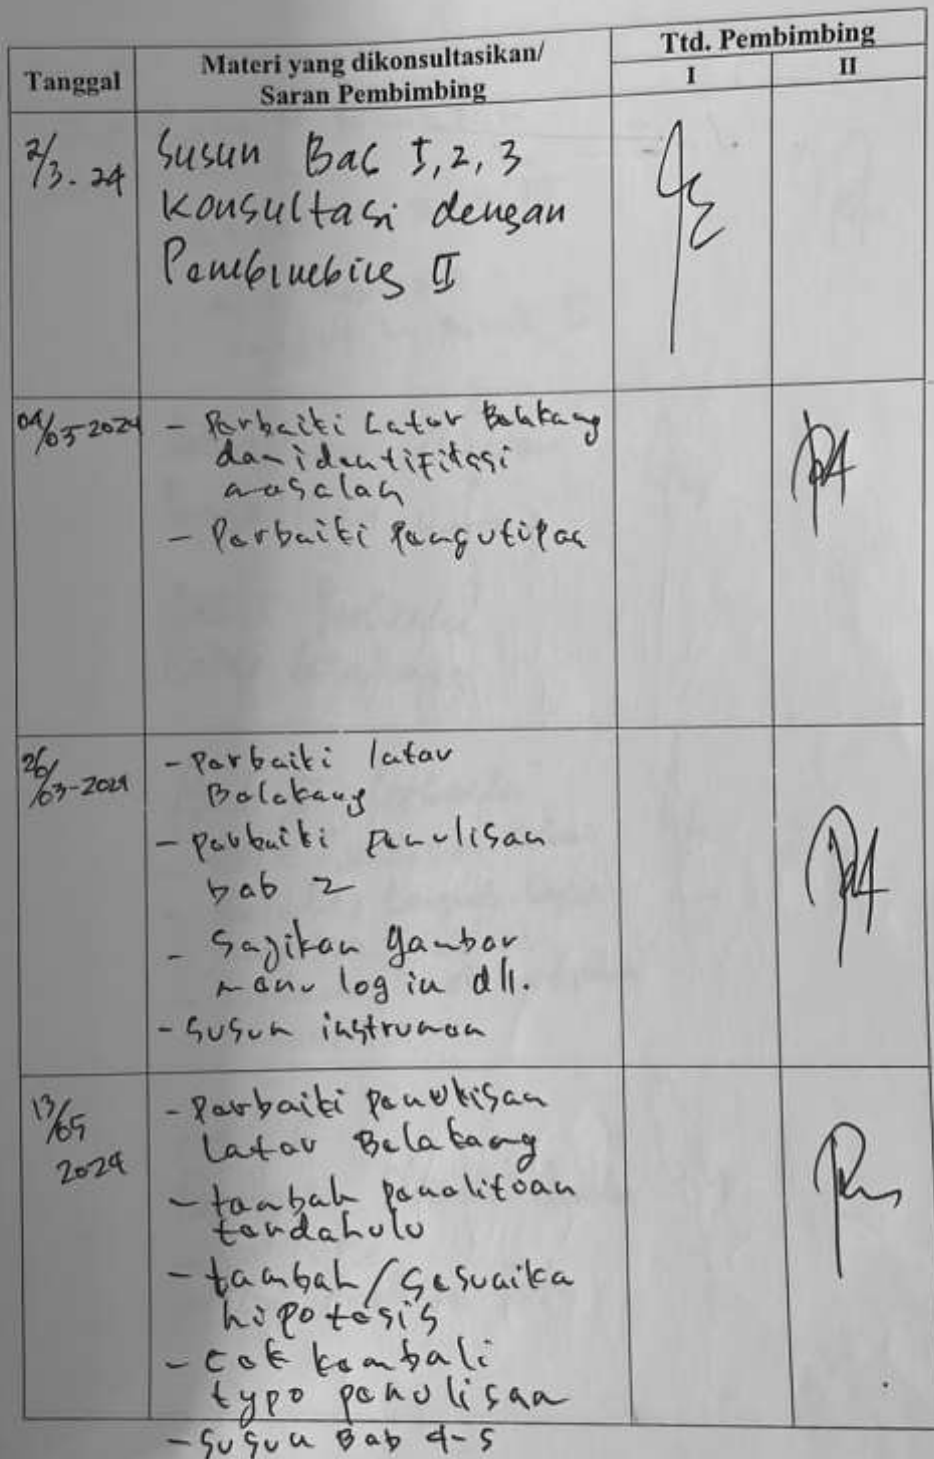 Ttd. Pembimbing
Tanggal
Materi yang dikonsultasikan/
Saran Pembimbing
I
II
2/3-24
Susun Bab 1, 2, 3
Konsultasi dengan
Pembimbing II
04/03-2024
- Perbaiki Latar Belakang
dan identifikasi
masalah
- Perbaiki Pengutipan
26/03-2024
- Perbaiki latar
Belakang
- perbaiki Penulisan
bab 2
- Sajikan gambar
menu log in dll.
- Susun instrumen
13/05
2024
- Perbaiki penulisan
Latar Belakang
- tambah penelitian
terdahulu
- tambah/sesuaika
hipotesis
- cek kembali
typo penulisan
- Susun Bab 4-5